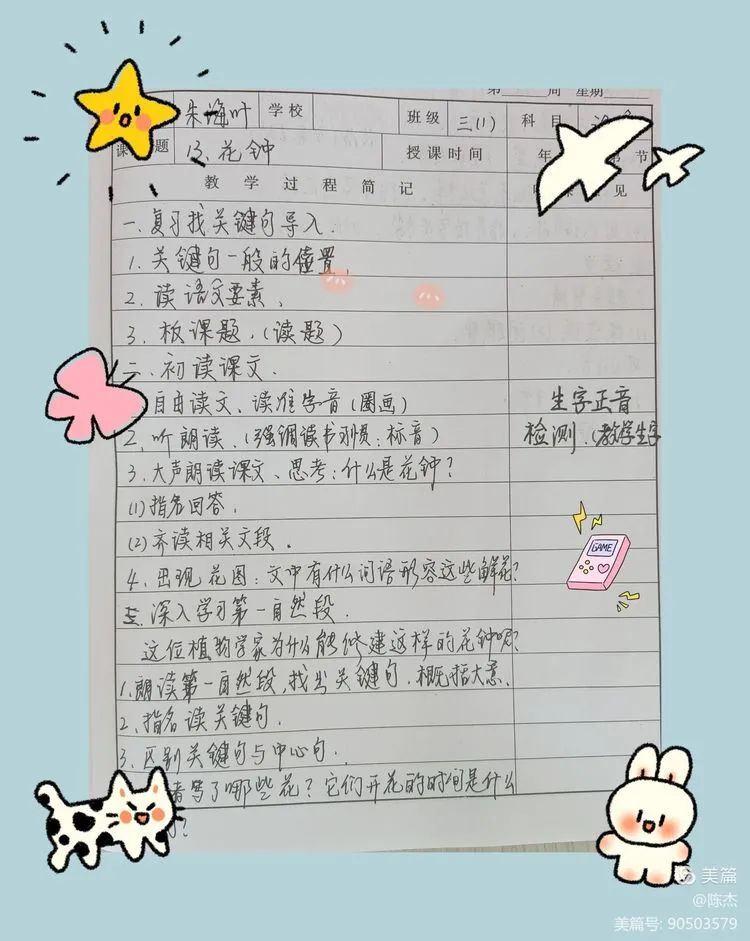 第 周 星期
朱海叶 学校 班级 三(1) 科目
课 题 13. 花钟 授课时间 年 节
教学过程简记 见
一.复习找关键句导入.
1. 关键句一般的位置.
2. 读语文要素.
3. 板课题.(读题)
二.初读课文.
自由读文、读准字音(圈画)
生字正音
2. 听朗读.(强调读书习惯:标音)
检测.(教学生字
3. 大声朗读课文、思考:什么是花钟?
(1)指名回答.
(2)齐读相关文段.
4. 出现花图:文中有什么词语形容这些鲜花?
三.深入学习第一自然段.
这位植物学家为什么能修建这样的花钟呢?
1.朗读第一自然段,找出关键句.概括大意.
2. 指名读关键句.
3. 区别关键句与中心句.
者写了哪些花?它们开花的时间是什么
?
GAME
美篇
@陈杰
美篇号: 90503579